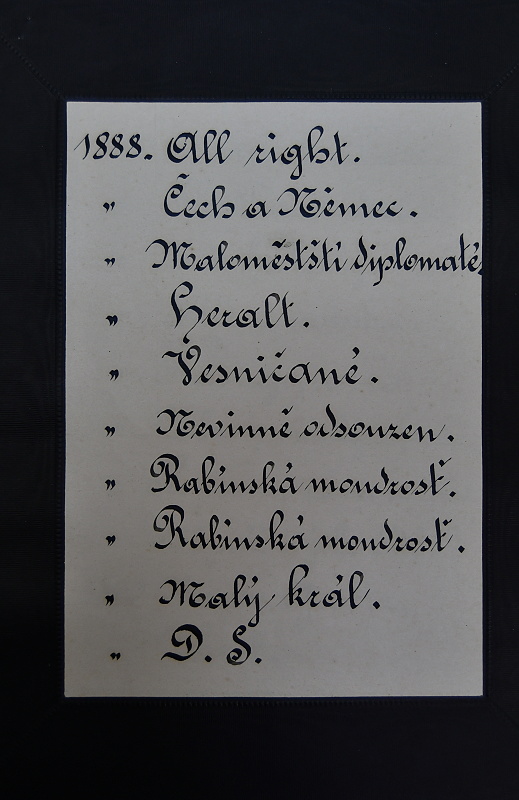 1888. All right.
" Čech a Němec.
" Maloměstští diplomaté.
" Heralt.
" Vesničané.
" Nevinně odsouzen.
" Rabínská moudrosť.
" Rabínská moudrosť.
" Malý král.
" D. S.